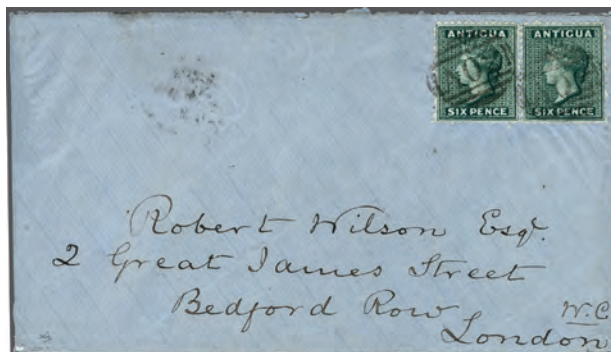 ANTIGUA ANTIGUA
SIX PENCE SIX PENCE
Robert Wilson Esqr.
2 Great James Street
Bedford Row W.C
London